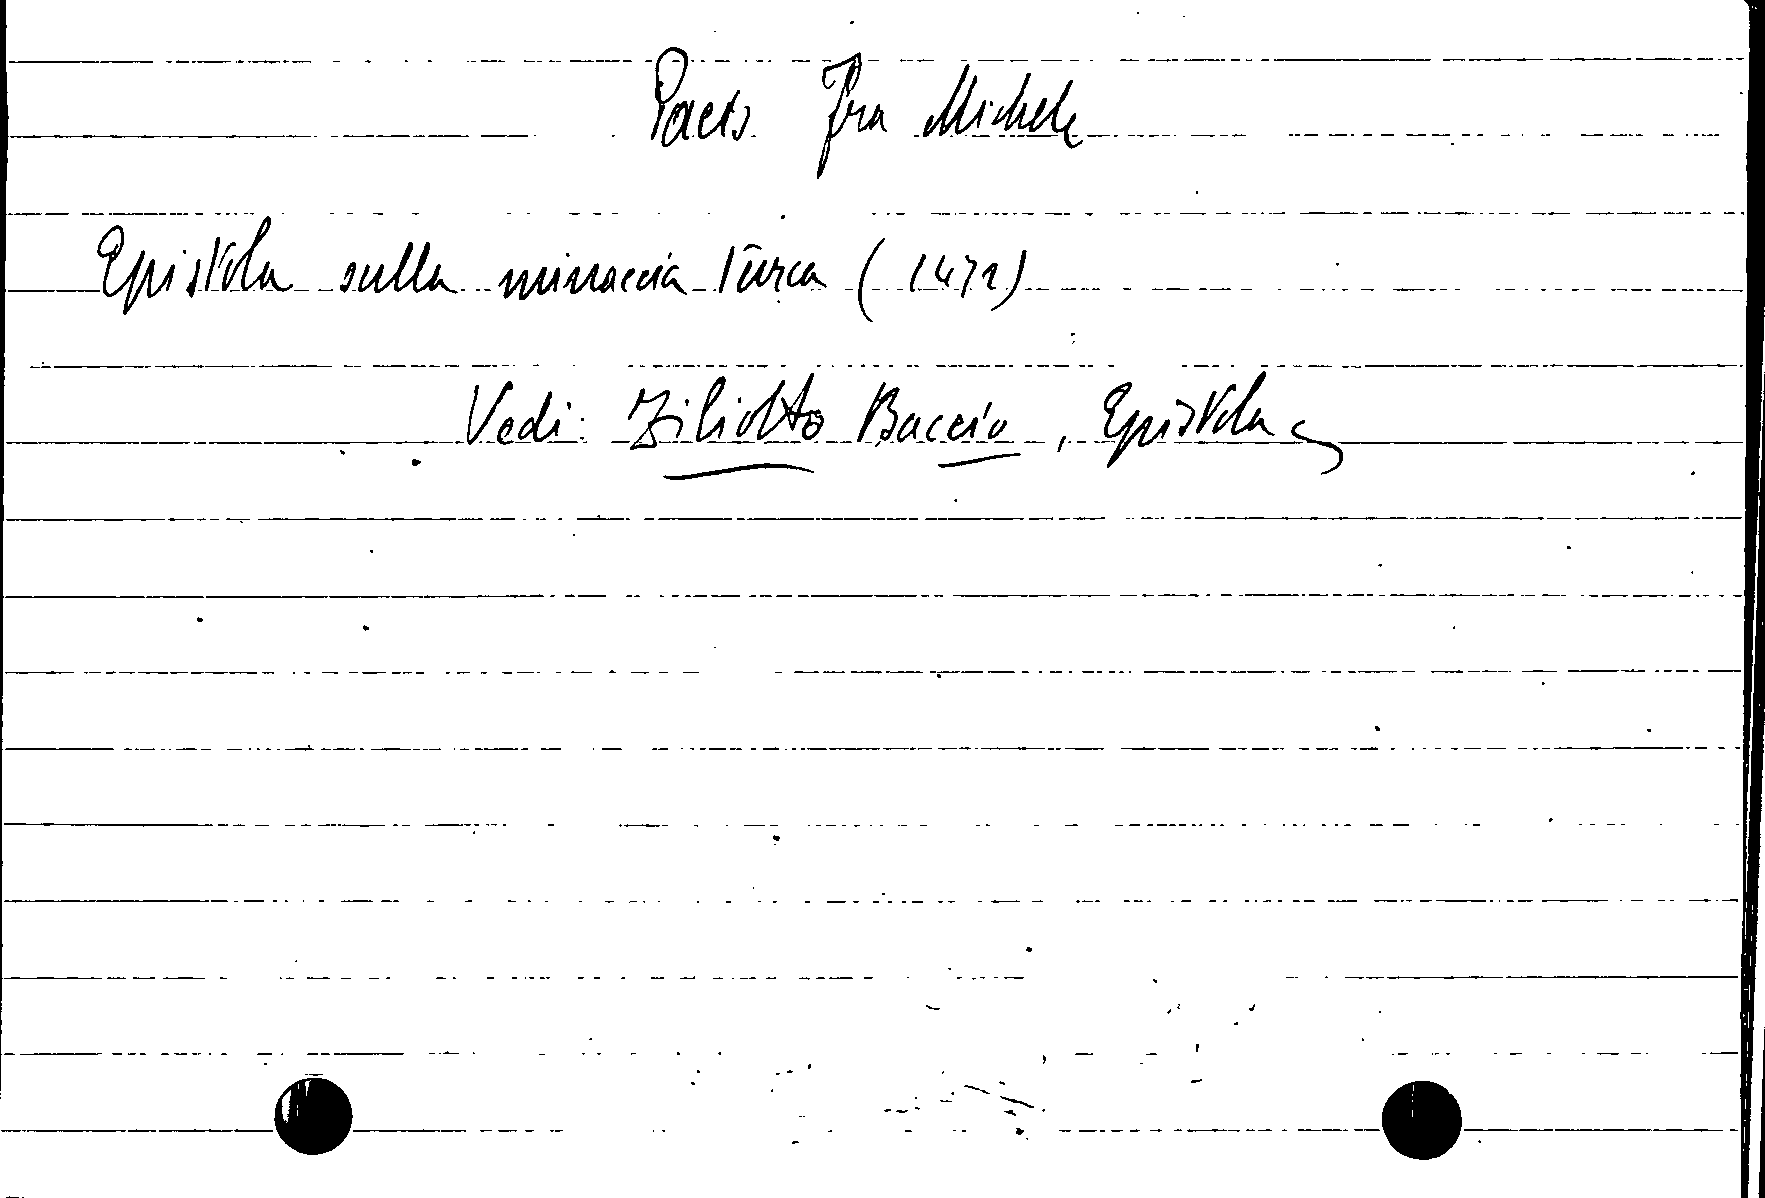 Paeto Fra Michele
Epistola sulla minaccia turca (1472)
Vedi: Ziliotto Baccio, Epistola